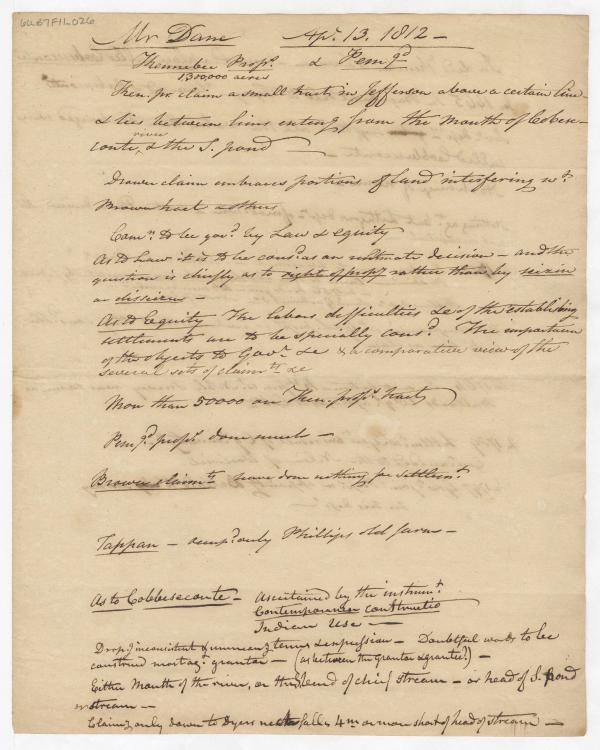 6L67F1L026
Mr Dane Apr. 13. 1812 —
Kennebec Propr. & Pemqd
1300,000 acres
Ken. pr. claim a small tract in Jefferson above a certain line
& lies between lines enterg from the Mouth of Cobese-
river
conte, & the S. pond —
Drown claim embraces portions of land interfering wt.
Brown tract & others
Comn. to be govd. by Law & equity
As to Law it is to be consd. as an ultimate decision — and the
question is chiefly as to right of propy rather than by seizen
or disseizen —
As to Equity The labors difficulties &c of the establishing
settlements are to be specially consd. The importance
of the objects to Govr. &c & a comparative view of the
several sets of claimts. &c
More than 50000 on Ken. props. tract
Pemqd props. done much —
Brown claimts. have done nothing for settlemt.
Tappan — occupd. only Phillips old farm —
As to Cobbeseconte — Ascertained by the instrumt.
Contemporaneous constructio
Indian Use —
Drop g inconsistent & unmeang terms & expression — Doubtful words to be
construed most agt. grantor — (as between the Grantor & grantee?) —
Either Mouth of the river, or the head of chief stream — or head of S. pond
or stream —
Claimg only down to Dyers falls 4 m or more short of head of stream —